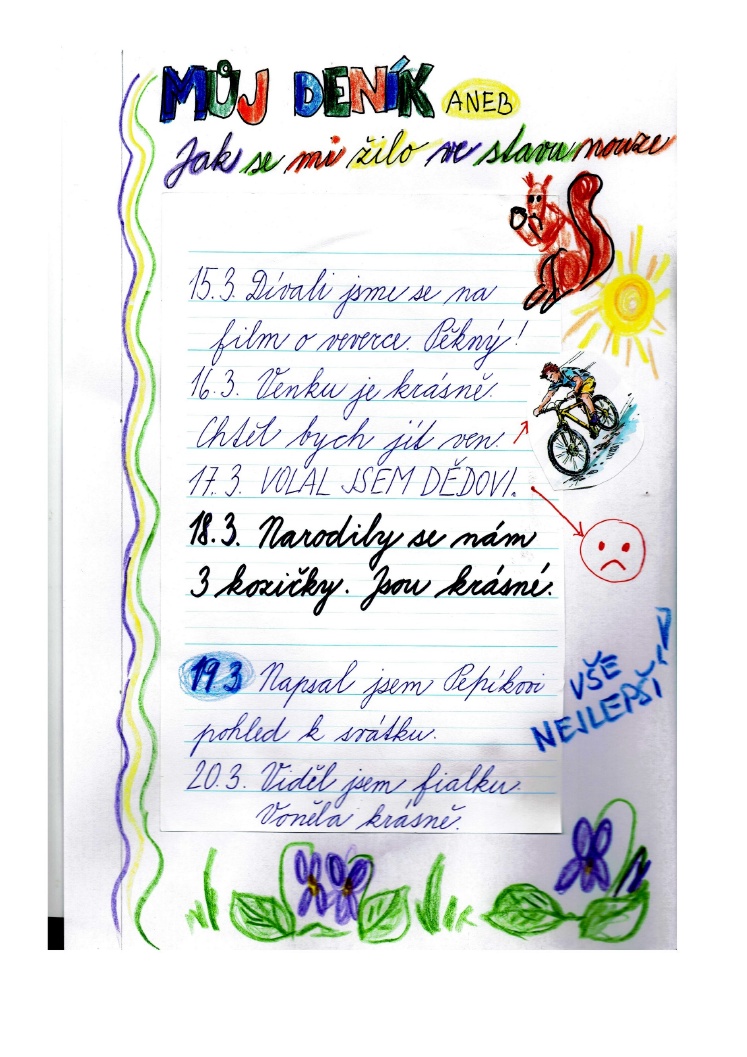 MŮJ DENÍK ANEB
Jak se mi žilo ve stavu nouze
15.3. Dívali jsme se na
film o veverce. Pěkný!
16.3. Venku je krásně.
Chtěl bych jít ven.
17.3. VOLAL JSEM DĚDOVI.
18.3. Narodily se nám
3 kozičky. Jsou krásné.
19 3 Napsal jsem Pepíkovi
pohled k svátku.
VŠE
NEJLEPŠÍ!
20.3. Viděl jsem fialku.
Voněla krásně.